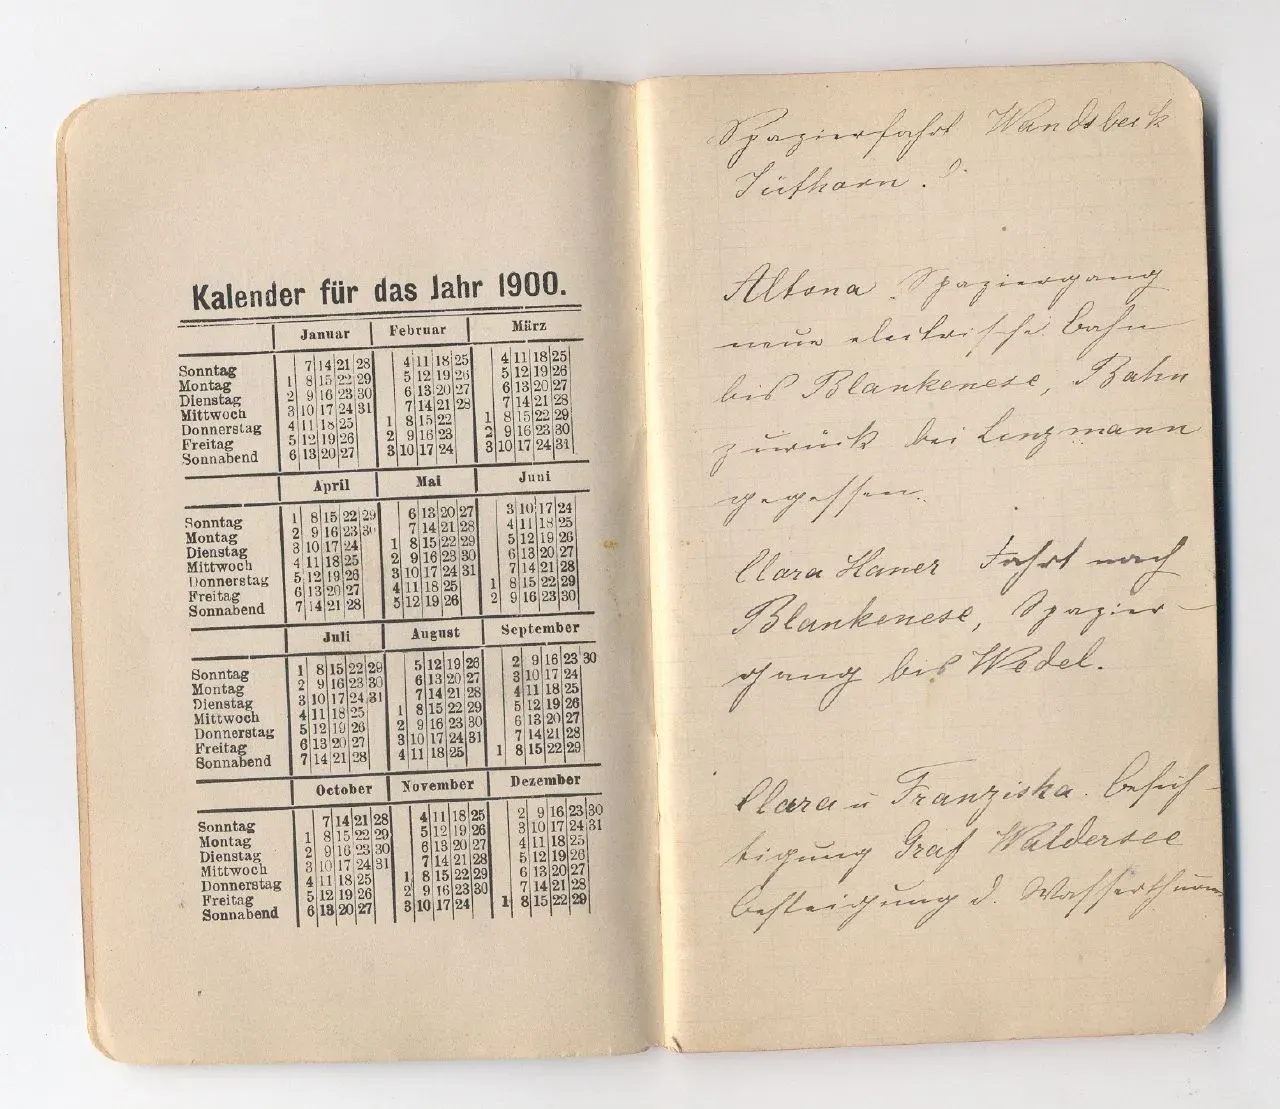 Kalender für das Jahr 1900.
Januar Februar März
Sonntag 7 14 21 28 4 11 18 25 4 11 18 25
Montag 1 8 15 22 29 5 12 19 26 5 12 19 26
Dienstag 2 9 16 23 30 6 13 20 27 6 13 20 27
Mittwoch 3 10 17 24 31 7 14 21 28 7 14 21 28
Donnerstag 4 11 18 25 1 8 15 22 1 8 15 22 29
Freitag 5 12 19 26 2 9 16 23 2 9 16 23 30
Sonnabend 6 13 20 27 3 10 17 24 3 10 17 24 31
April Mai Juni
Sonntag 1 8 15 22 29 6 13 20 27 3 10 17 24
Montag 2 9 16 23 30 7 14 21 28 4 11 18 25
Dienstag 3 10 17 24 1 8 15 22 29 5 12 19 26
Mittwoch 4 11 18 25 2 9 16 23 30 6 13 20 27
Donnerstag 5 12 19 26 3 10 17 24 31 7 14 21 28
Freitag 6 13 20 27 4 11 18 25 1 8 15 22 29
Sonnabend 7 14 21 28 5 12 19 26 2 9 16 23 30
Juli August September
Sonntag 1 8 15 22 29 5 12 19 26 2 9 16 23 30
Montag 2 9 16 23 30 6 13 20 27 3 10 17 24
Dienstag 3 10 17 24 31 7 14 21 28 4 11 18 25
Mittwoch 4 11 18 25 1 8 15 22 29 5 12 19 26
Donnerstag 5 12 19 26 2 9 16 23 30 6 13 20 27
Freitag 6 13 20 27 3 10 17 24 31 7 14 21 28
Sonnabend 7 14 21 28 4 11 18 25 1 8 15 22 29
October November Dezember
Sonntag 7 14 21 28 4 11 18 25 2 9 16 23 30
Montag 1 8 15 22 29 5 12 19 26 3 10 17 24 31
Dienstag 2 9 16 23 30 6 13 20 27 4 11 18 25
Mittwoch 3 10 17 24 31 7 14 21 28 5 12 19 26
Donnerstag 4 11 18 25 1 8 15 22 29 6 13 20 27
Freitag 5 12 19 26 2 9 16 23 30 7 14 21 28
Sonnabend 6 13 20 27 3 10 17 24 1 8 15 22 29
Spazierfahrt Wandsbeck
Altona Spaziergang
neue electrische Bahn
bis Blankenese, Bahn
zurück bei Lenzmann
gegessen.
Clara Haner Fahrt nach
Blankenese, Spazier-
gang bis Wedel.
Clara u Franziska. Besich-
tigung Graf Waldersee
Besteigung d. Wasserthurm